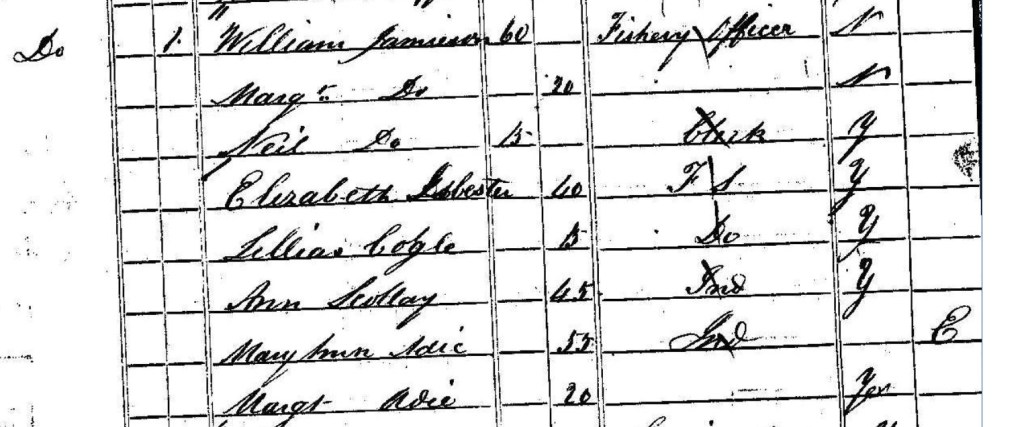 Do 1 William Jamieson 60 Fishery Officer N
Margt Do 20 N
Neil Do 15 Clerk Y
Elizabeth Isbester 40 F S Y
Lillias Cogle 15 Do Y
Ann Scollay 45 Ind Y
Mary Ann Adie 55 Ind E
Margt Adie 20 Yes